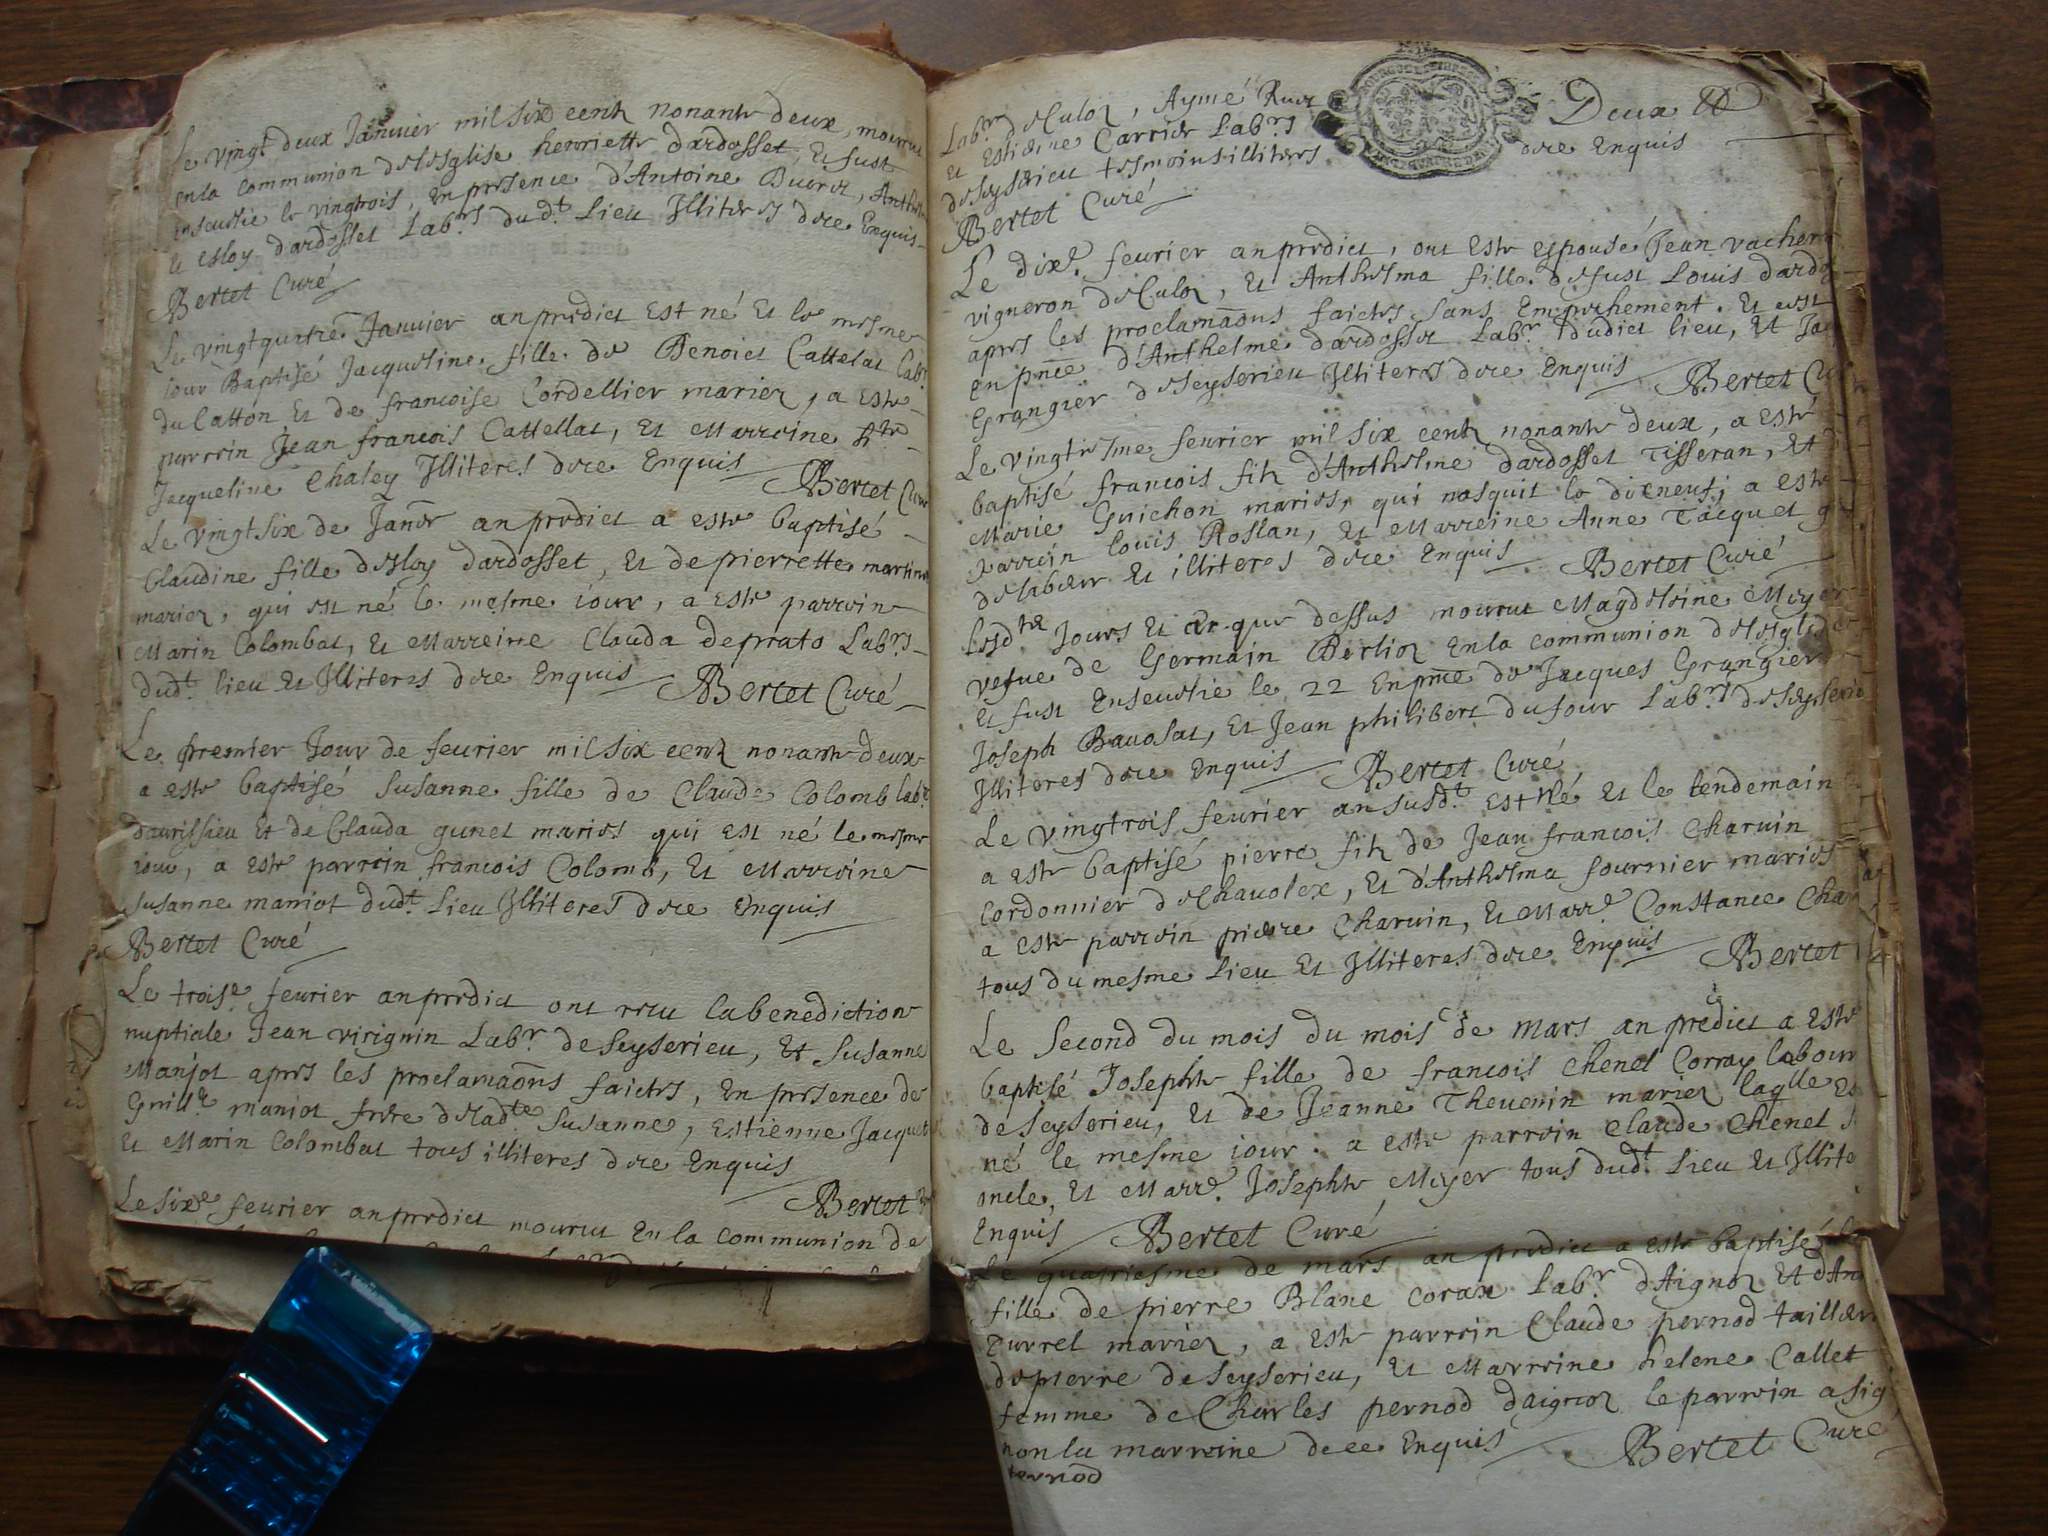 Le vingt deux Januier mil six centz nonante deux, mourut
en la communion de lesglise henriette dardosset, et fust
enseuelie le vingtrois, en presence d'Antoine
et Esloy dardosset Lab.rs du d.t Lieu Illiteres de ce Enquis
Bertet Curé
Le vingtquatre Januier an predict Est né Et le mesme
iour Baptisé Jacqueline fille de Benoict Cattelat Lab.r
du Catton Et de francoise Cordellier mariez, a Este
parrein Jean francois Cattellat, Et Marreine
Jacqueline Chaley Illiteres de ce Enquis Bertet Curé
Le vingt six de Janur an predict a este baptisé
Claudine fille desloy dardosset, Et de pierrette martine
mariez, qui est né le mesme iour, a este parrein
Marin Colombat, Et Marreine Clauda deprato Lab.rs
dud.t lieu Et Illiteres de ce Enquis Bertet Curé
Le premier Jour de feurier mil six centz nonante deux
a este baptisé Susanne fille de Claude Colomb lab.r
daurissieu Et de Clauda gunet mariés qui est né le mesme
iour, a este parrein francois Colomb, Et Marreine
Susanne maniot dud.t Lieu Illiteres de ce Enquis
Bertet Curé
Le trois.e feurier an predict ont receu la benediction
nuptiale Jean virignin Lab.r de Seyserieu, Et Susanne
Manjot apres les proclamaõns faictes, En presence de
Guill.e maniot frere de lad.te Susanne, Estienne Jacquet
Et Marin Colombat tous illiteres de ce Enquis
Bertet
Le six.e feurier an predict mourut En la Communion de
Lab.r de Culoz, Aymé
Et Estienne Carrier Lab.rs
de Seyserieu tesmoins illiteres de ce Enquis
Deux
Bertet Curé
Le dix.e feurier an predict, ont Este espousé Jean vacher
vigneron de Culoz, Et Anthelma fille de fust Louis dardo
apres les proclamaõns faictes sans Empechement. Et est
en pnce d'Anthelme dardosset Lab.r dudict lieu, Et Ja
Grangier de Seyserieu Illiteres de ce Enquis Bertet Cu
Le vingtiesme feurier mil six centz nonante deux, a esté
baptisé francois filz d'Anthelme dardosset Tisseran, Et
Marie Guichon mariés, qui nasquit le dixneuf; a este
parrein louis Roslan, Et Marreine Anne Jacquet
Et illiteres de ce Enquis Bertet Curé
Lesd.tz Jours Et an que dessus mourut Magdeleine Meyer
vefue de Germain Berlioz En la communion de lesglise
Et fust Enseuelie le 22 En pnce de Jacques Grangier
Joseph Bauosat, Et Jean philibert dufour Lab.rs de Seyserieu
Illiteres de ce Enquis Bertet Curé
Le vingtrois feurier an susd.t Est né Et le lendemain
a este baptisé pierre filz de Jean francois Charuin
Cordonnier de Chauolex, Et d'Anthelma fournier mariés
a este parrein pierre Charuin, Et Marr.e Constance Char
tous du mesme Lieu Et Illiteres de ce Enquis Bertet
Le Second du mois du mois de Mars an predict a Este
baptisé Josephte fille de francois Chenel Corray labour
de Seyserieu, Et de Jeanne Theuenin mariez laqlle Es
né le mesme iour: a este parrein Claude Chenel
oncle, Et Marr.e Josephte Meyer tous dud.t Lieu Et Illite
Enquis Bertet Curé
Le quatriesme de mars an predict a este baptisé
fille de pierre Blanc corax Lab.r d'Aignoz Et d'An
Turrel mariez, a Este parrein Claude pernod tailleur
de pierre de Seyserieu, Et Marreine helene Callet
femme de Charles pernod daignoz le parrein a sig
non la marreine de ce Enquis Bertet Curé
pernod